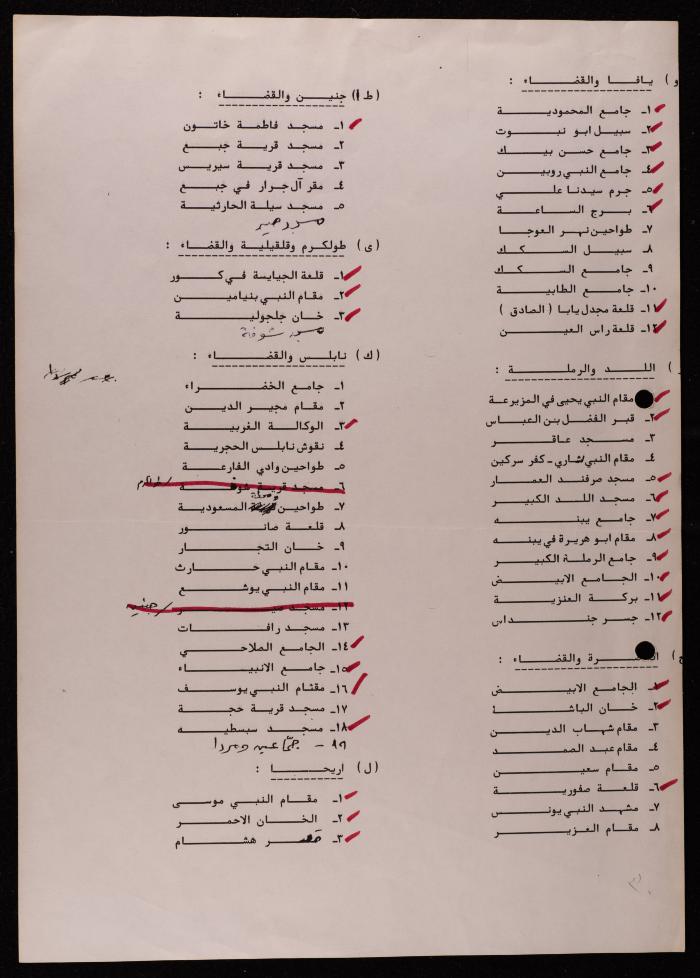 و) يافا والقضاء :
١ـ جامع المحمودية
٢ـ سبيل ابو نبوت
٣ـ جامع حسن بيك
٤ـ جامع النبي روبين
٥ـ جرم سيدنا علي
٦ـ برج الساعة
٧ـ طواحين نهر العوجا
٨ـ سبيل السكك
٩ـ جامع السكك
١٠ـ جامع الطابية
١١ـ قلعة مجدل يابا ( الصادق )
١٢ـ قلعة راس العين
) اللد والرملة :
مقام النبي يحيى في المزيرعة
٢ـ قبر الفضل بن العباس
٣ـ مسجد عاقر
٤ـ مقام النبي شاري ـ كفر سركين
٥ـ مسجد صرفند العمار
٦ـ مسجد اللد الكبير
٧ـ جامع يبنه
٨ـ مقام ابو هريرة في يبنه
٩ـ جامع الرملة الكبير
١٠ـ الجامع الابيض
١١ـ بركة العنزية
١٢ـ جسر جنداس
ح) رة والقضاء :
١ـ الجامع الابيض
٢ـ خان الباشا
٣ـ مقام شهاب الدين
٤ـ مقام عبد الصمد
٥ـ مقام سعين
٦ـ قلعة صفورية
٧ـ مشهد النبي يونس
٨ـ مقام العزير
(ط) جنين والقضاء :
١ـ مسجد فاطمة خاتون
٢ـ مسجد قرية جبع
٣ـ مسجد قرية سيريس
٤ـ مقر آل جرار في جبع
٥ـ مسجد سيلة الحارثية
مسجد صير
(ى) طولكرم وقلقيلية والقضاء :
١ـ قلعة الجيايسة في كور
٢ـ مقام النبي بنيامين
٣ـ خان جلجولية
مسجد شوفة
(ك) نابلس والقضاء :
١ـ جامع الخضراء
٢ـ مقام مجير الدين
٣ـ الوكالة الغربية
٤ـ نقوش نابلس الحجرية
٥ـ طواحين وادي الفارعة
٦ـ مسجد قرية شوفة / طولكرم
٧ـ طواحين محطة المسعودية
٨ـ قلعة صانور
٩ـ خان التجار
١٠ـ مقام النبي حارث
١١ـ مقام النبي يوشع
١٢ـ مسجد صير / جنين
١٣ـ مسجد رافات
١٤ـ الجامع الصلاحي
١٥ـ جامع الانبياء
١٦ـ مقثام النبي يوسف
١٧ـ مسجد قرية حجة
١٨ـ مسجد سبسطيه
١٩ - جمّاعين ومردا
(ل) اريحا :
١ـ مقام النبي موسى
٢ـ الخان الاحمر
٣ـ قصر هشام